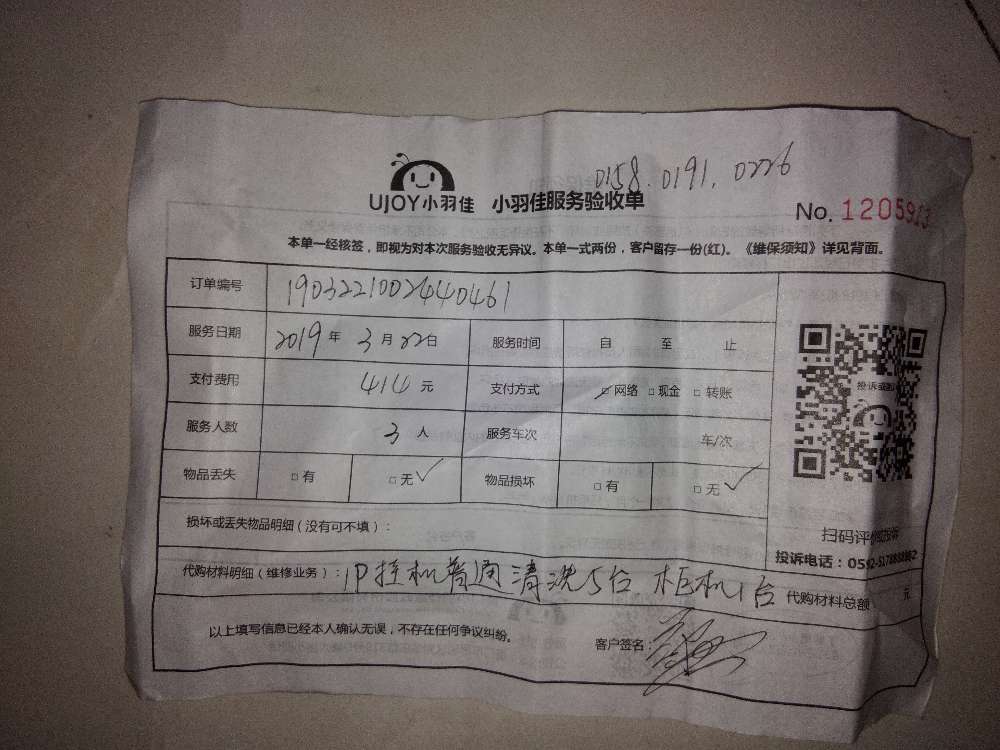 0158. 0191. 0226
UJOY小羽佳 小羽佳服务验收单
No. 1205913
本单一经核签，即视为对本次服务验收无异议。本单一式两份，客户留存一份(红)。《维保须知》详见背面。
订单编号 1903221002440461
服务日期 2019 年 3 月 22 日 服务时间 自 至 止
支付费用 414 元 支付方式 网络 现金 转账
服务人数 3 人 服务车次 车/次
物品丢失 □有 □无✓ 物品损坏 □有 □无✓
投诉或
损坏或丢失物品明细（没有可不填）：
扫码评价
投诉电话：0592-5178
代购材料明细（维修业务）：1P挂机普通清洗5台 柜机1台 代购材料总额 元
以上填写信息已经本人确认无误，不存在任何争议纠纷。 客户签名：